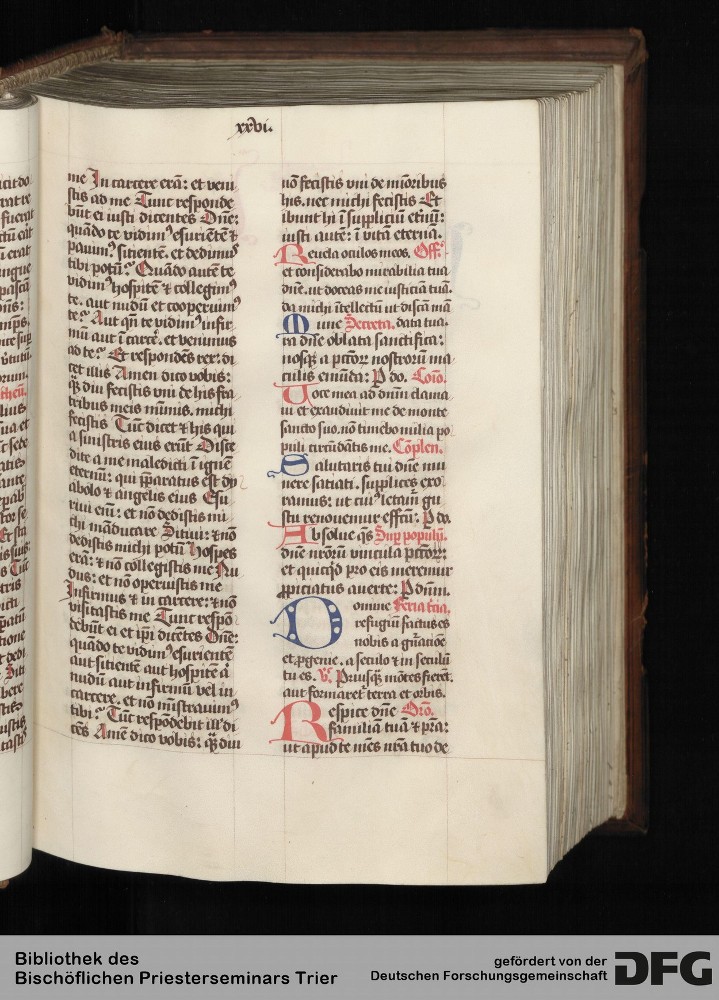 xxvi.
me In carcere erā: et veni
stis ad me Tunc responde
būnt ei iusti dicentes Dn̄e:
quādo te vidim⁹ esuriētē ⁊
pauim⁹. sitientē. et dedim⁹
tibi potū? Quādo autē te
vidim⁹ hospitē ⁊ collegim⁹
te. aut nudū et cooperuim⁹
te? Aut qn̄ te vidim⁹ infir
mū aut ī carcē. et venimus
ad te? Et respondēs rex: di
cet illis Amen dico vobis:
q̄ diu fecistis vni de his fra
tribus meis mīmis. michi
fecistis Tūc dicet ⁊ his qui
a sinistris eius erūt Disce
dite a me maledicti ī ignē
eternū: qui p̄paratus est dy
abolo ⁊ angelis eius Esu
riui eni: et nō dedistis mi
chi māducare Sitiui: ⁊ nō
dedistis michi potū Hospes
erā: ⁊ nō collegistis me Nu
dus: et nō operuistis me
Infirmus ⁊ in carcere: ⁊ nō
visitastis me Tunc respō
debūt ei et ip̄i dicētes Dn̄e:
quādo te vidim⁹ esurientē
aut sitientē aut hospitē aū
nudū aut infirmū vel in
carcere. et nō mīstrauim⁹
tibi? Tūc respōdebit ill' di
cēs Amē dico vobis: q̄ diu
nō fecistis vni de mīoribus
his. nec michi fecistis Et
ibunt hi ī suppliciū etn̄ū:
iusti autē: ī vitā eternā.
Reuela oculos meos. Off.
et considerabo mirabilia tua
dn̄e. ut doceas me iusticiā tuā.
da michi ītellectū ut discā mā
Mune Secreta. data tua.
ra dn̄e oblata sanctifica:
nosq̄ a pctōꝝ nostrorū ma
culis emūda: P do. Cōīo.
Voce mea ad dn̄m claua
ui et exaudiuit me de monte
sancto suo. nō timebo milia po
puli circūdātis me. Cōplen.
Salutaris tui dn̄e mu
nere satiati. supplices exo
ramus: ut cui⁹ letam̄ gu
stu renouemur effctū: P do.
Absolue q̄s Sup̄ populū.
dn̄e nr̄orū vincula pctōꝝ:
et quicq̄d pro eis meremur
ꝓpiciatus auerte: P dn̄m.
Domine Feria tcīa.
refugiū factus es
nobis a gn̄atiōe
et ꝓgenie. a seculo ⁊ in seculū
tu es. V̄. Priusq̄ mōtes fierēt.
aut formaret̄ terra et orbis.
Respice dn̄e Orō.
familiā tuā ⁊ pr̄a:
ut apud te mēs nr̄a tuo de
Bibliothek des
Bischöflichen Priesterseminars Trier
gefördert von der
Deutschen Forschungsgemeinschaft
DFG